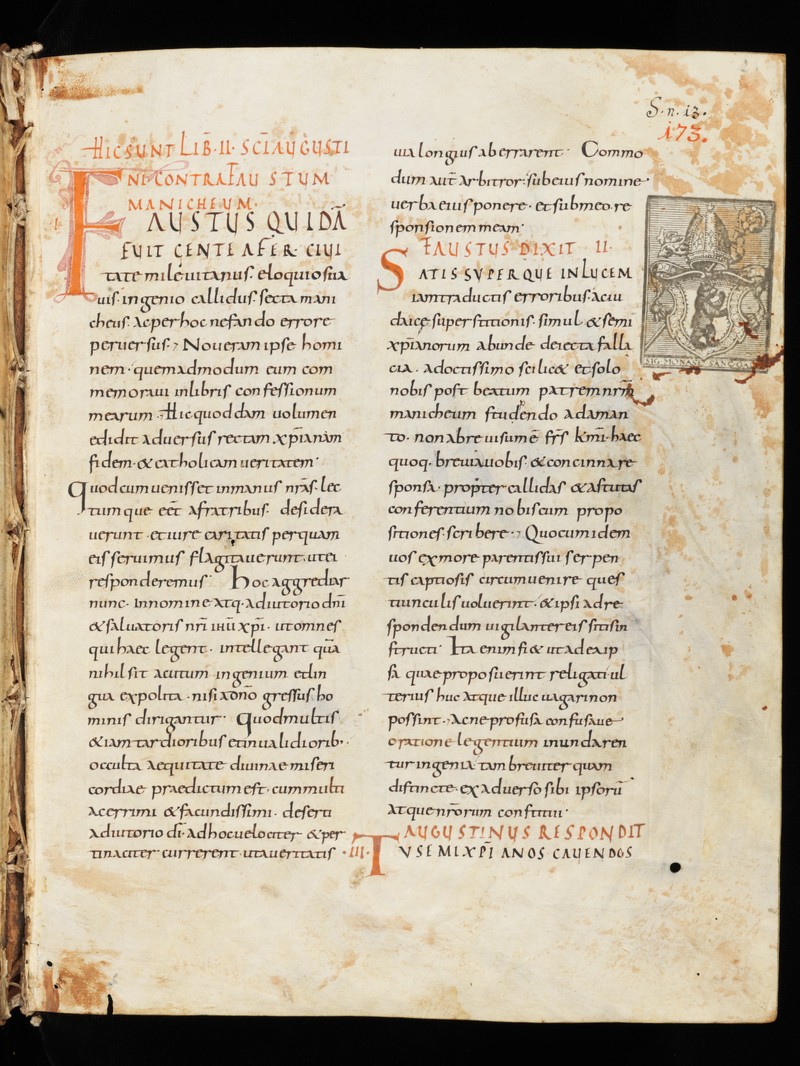 S. n. 13.
173.
HIC SUNT LIB̅. II. SC̅I AUGUSTI
NI CONTRA FAUSTUM
MANICHEUM.
I
FAUSTUS QUIDA̅
FUIT GENTE AFER. CIUI
tate mileuitanus. eloquio sua
uis. ingenio callidus. secta mani
cheus. ac per hoc nefando errore
peruersus. Noueram ipse homi
nem. quemadmodum eum com
memoraui in libris confessionum
mearum. Hic quoddam uolumen
edidit aduersus rectam xp̅ianam
fidem. & catholicam ueritatem.
Quod cum uenisset in manus nr̅as. lec
tumque ee̅t a fratribus. desidera
uerunt. et iure caritatis per quam
eis seruimus flagitauerunt. ut ei
responderemus. Hoc aggrediar
nunc. in nomine atq. adiutorio dn̅i
& saluatoris nr̅i ihu̅ xp̅i. ut omnes
qui haec legent. intellegant qua̅
nihil sit acutum ingenium et lin
gua expolita. nisi a dn̅o gressus ho
minis dirigantur. Quod multis
& iam tardioribus et inualidiorib.
occulta aequitate diuinae miseri
cordiae praedictum est. cum multi
acerrimi & facundissimi. deserti
adiutorio di̅. ad hoc uelociter & per
tinaciter currerent. ut a ueritatis
uia longius aberrarent. Commo
dum aut̅ arbitror. sub eius nomine
uerba eius ponere. et sub meo re
sponsionem meam.
FAUSTUS DIXIT II.
SATIS SUPERQUE IN LUCEM
iam traductis erroribus. ac iu
daice superstitionis. simul & semi
xp̅ianorum abunde deiecta falla
cia. a doctissimo scilic& et solo
nobis post beatum patrem nr̅m
manicheum studendo adaman
to. non ab re uisum e̅ fr̅s km̅i. haec
quoq. breuia uobis. & concinna re
sponsa. propter callidas & astutas
conferentium nobiscum propo
sitiones. scribere. Quo cum idem
uos ex more parentis sui serpen
tis captiosis circumuenire ques
tiunculis uoluerint. & ipsi ad re
spondendum uigilanter eis sitis in
structi. Ita enim fi& ut ad ea ip
sa quae proposuerint religati ul
terius huc atque illuc uagari non
possint. Ac ne profusa confusaue
oratione legentium inundaren
tur ingenia tam breuiter quam
distincte. ex aduerso sibi ipsoru̅
atque nr̅orum constitui.
AUGUSTINUS RESPONDIT
III. TU SEMIXP̅IANOS CAUENDOS